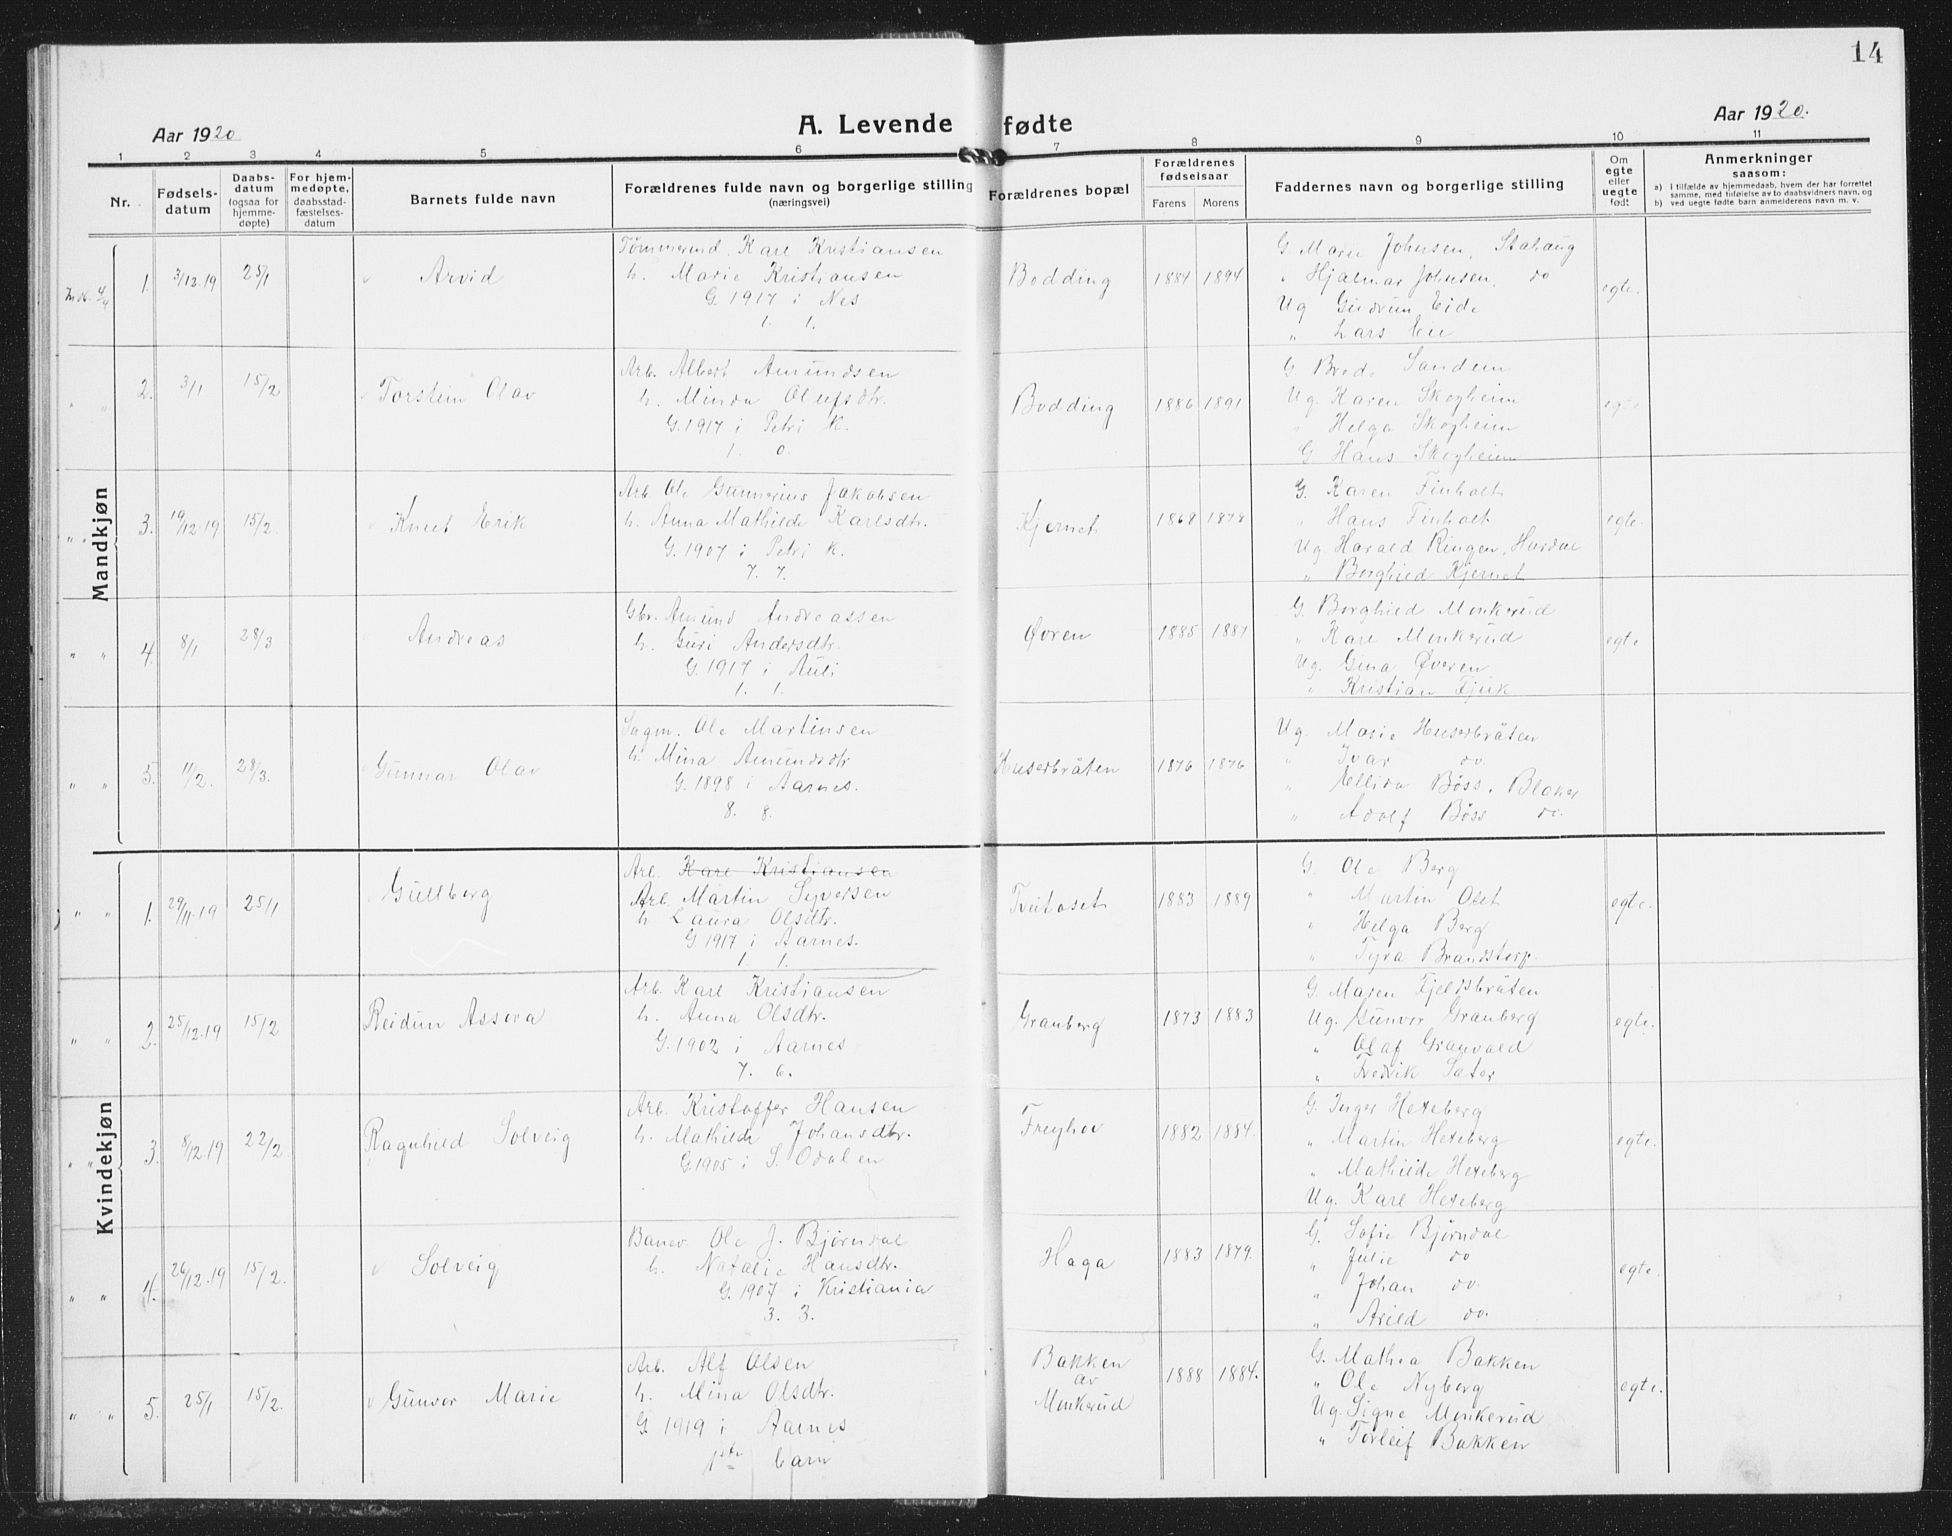 14
Aar 1920
A. Levende fødte
Aar 1920.
1 2 3 4 5 6 7 8 9 10 11
Nr.
Fødsels-
datum
Daabs-
datum
(ogsaa for
hjemme-
døpte)
For hjem-
medøpte,
daabsstad-
fæstelses-
datum
Barnets fulde navn
Forældrenes fulde navn og borgerlige stilling
(næringsvei)
Forældrenes bopæl
Forældrenes
fødselsaar
Farens Morens
Faddernes navn og borgerlige stilling
Om
egte
eller
uegte
født
Anmerkninger
saasom:
a) i tilfælde av hjemmedaab, hvem der har forrettet
samme, med tilføielse av to daabsvidners navn, og
b) ved uegte fødte barn anmelderens navn m. v.
Mandkjøn
1. 3/12.19 25/1 Arvid
Tømmermd. Karl Kristiansen
h. Marie Kristiansen
G. 1917 i Nes
1. 1.
Bodding 1884 1894
G Marie Johnsen, Stahaug
" Hjalmar Johnsen, do
Ug Gudrun Eide
" Lars Eie
egte.
2. 3/1 15/2 Torstein Olav
Arb. Albert Amundsen
h. Minda Olufsdtr.
G. 1917 i Petri K.
1. 0.
Bodding 1886 1891
G Brede Sandem
Ug. Karen Skogheim
" Helga Skogheim
G Hans Skogheim
egte
3. 19/12.19 15/2. Knut Erik
Arb. Ole Gunnerius Jakobsen
h. Anna Mathilde Karlsdtr.
G. 1907 i Petri K.
7. 7.
Kjernet 1868 1878
G. Karen Finholt
" Hans Finholt
Ug Harald Ringen, Hurdal
" Borghild Kjernet
egte.
4. 8/1 28/3 Andreas
Gbr. Amund Andreassen
h. Guri Andersdtr.
G. 1917 i Auli
1. 1.
Øvren 1885 1887
G. Borghild Monkerud
" Karl Monkerud
Ug. Gina Øveren
" Kristian Fjuk
egte
5. 11/2. 28/3. Gunnar Olav
Sagm. Ole Martinsen
h. Mina Amundsdtr
G. 1898 i Aarnes.
8. 8.
Huserbråten 1876 1876
Ug. Marie Huserbråten
" Ivar do.
" Ellida Böss, Blaker
" Adolf Böss do.
Kvindekjøn
1. 29/11.19 25/1 Gullborg
Arb. Karl Kristiansen
Arb. Martin Syversen
h. Laura Olsdtr.
G. 1917 i Aarnes.
1. 1.
Tvitoset 1883 1889
G. Ole Berg
" Martin Olet
" Helga Berg
" Tyra Brandstorp.
egte.
2. 25/12.19 15/2 Reidun Assora
Arb. Karl Kristiansen
h. Anna Olsdtr.
G. 1902 i Aarnes
7. 6.
Granberg 1873 1883
G. Maren Fjeldsbråten
Ug. Gunvor Granberg
" Olaf Granvold
" Fredrik Sæter
egte.
3. 8/12.19 22/2 Ragnhild Solveig
Arb. Kristoffer Hansen
h. Mathilde Johansdtr.
G. 1905 i S. Odalen
Freyhov 1882 1884.
G. Inger Hexeberg
" Martin Hexeberg
" Mathilde Hexeberg
Ug. Karl Hexeberg
egte.
4. 26/12.19 15/2. Solveig
Banev. Ole J. Bjørndal
h. Natalie Hansdtr.
G. 1907 i Kristiania
3. 3.
Haga 1883 1879.
G. Sofie Bjørndal
" Julie do
" Johan do.
" Arild do.
egte.
5. 25/1 15/2. Gunvor Marie
Arb. Alf Olsen
h. Mina Olsdtr.
G. 1919 i Aarnes
1ste barn
Bakken
av
Monkerud
1888 1884.
G. Mathea Bakken
" Ole Nyberg
Ug. Signe Monkerud
" Torleif Bakken
egte.